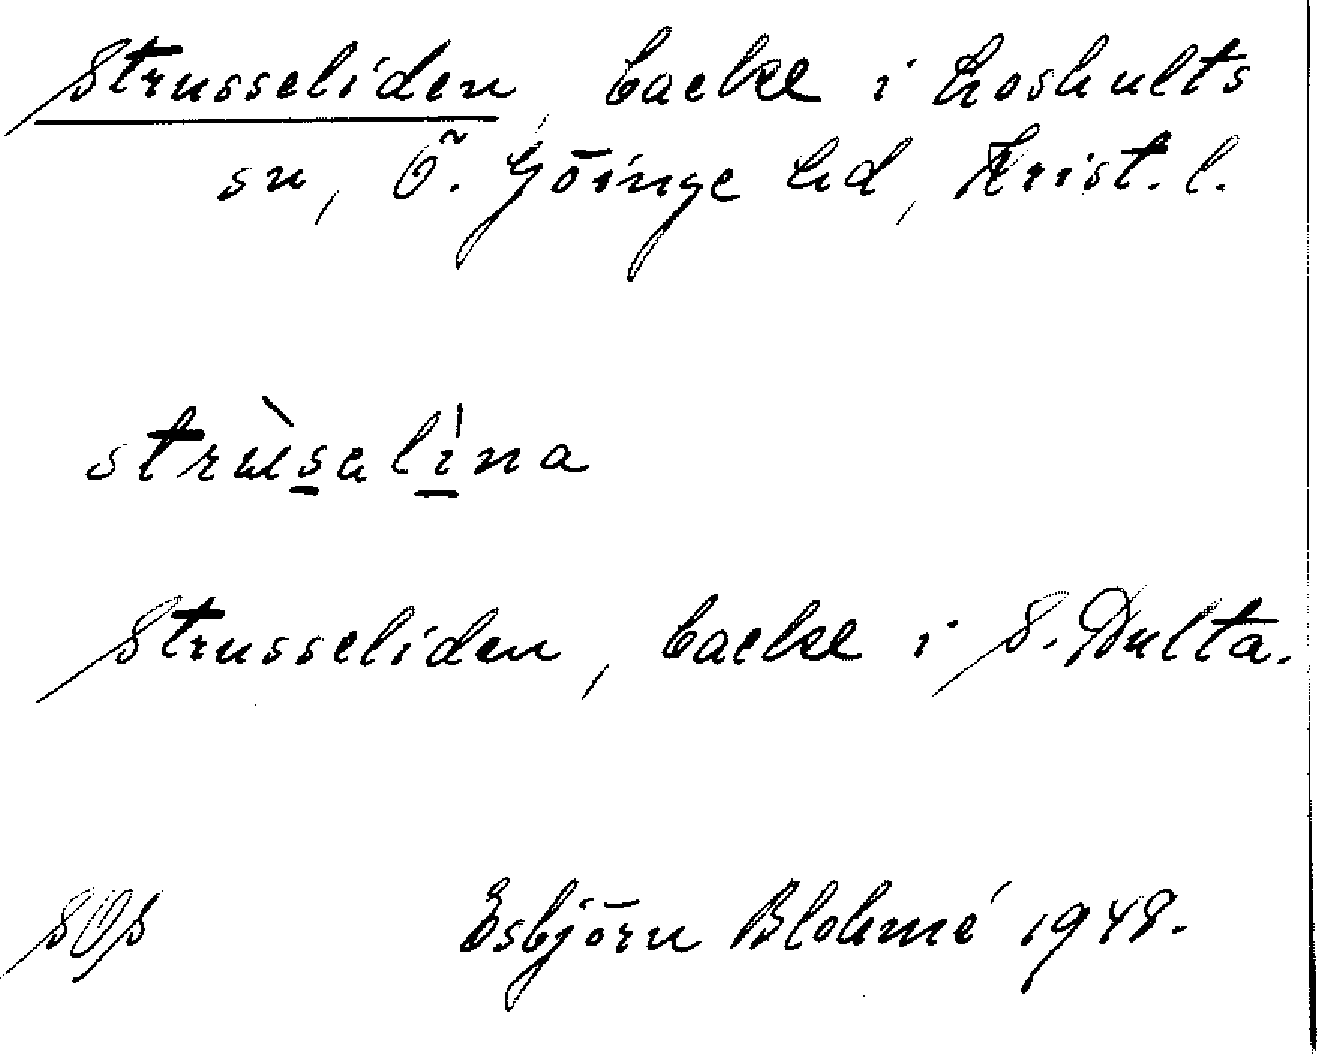 Strusseliden, backe i Loshults
sn, Ö. Göinge hd, Krist. l.
strùsalína
Strusseliden, backe i S. Dulta.
SOS Esbjörn Blohmé 1948.